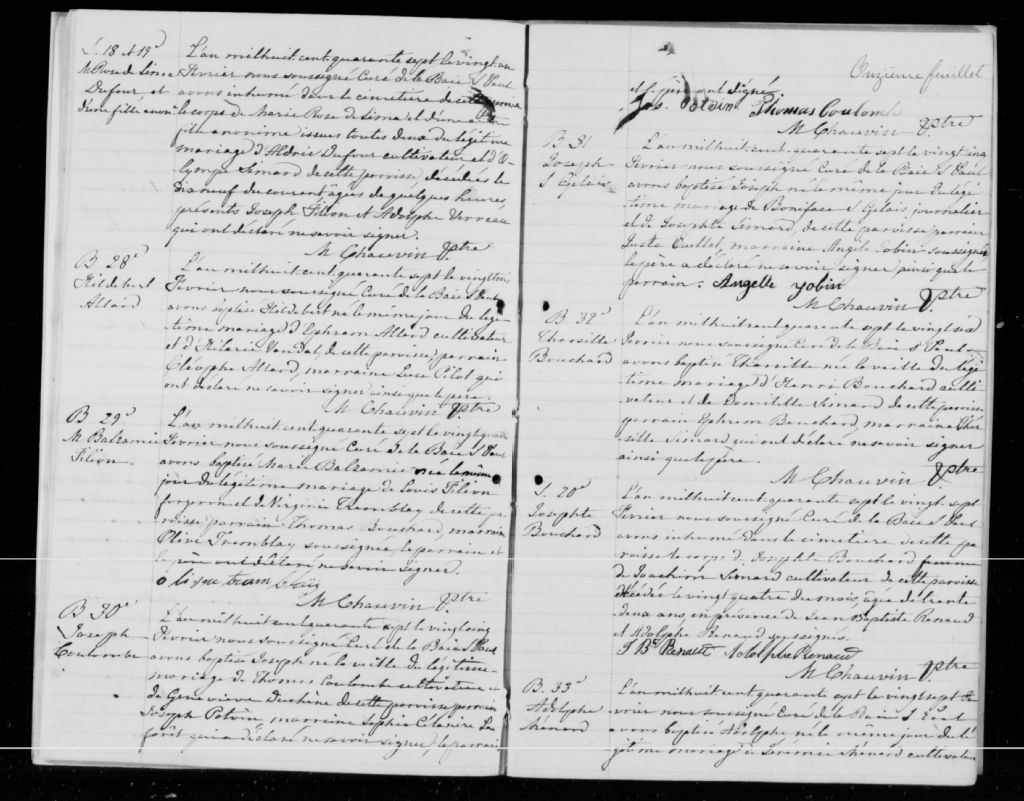 S. 18 et 19e
M. Rose de Lima
Dufour et
d'une fille anon.
L'an mil huit cent quarante sept le vingt un
Fevrier nous soussigné Curé de la Baie St Paul
avons inhumé dans le cimetiere de cette paroisse
le corps de Marie Rose de Lima et d'une autre
fille anonime issues toutes deux du légitime
mariage d'Aldric Dufour cultivateur et d'O-
lympe Simard de cette paroisse, décédées le
dix neuf du courant agées de quelques heures,
présents Joseph Filion et Adolphe
qui ont déclaré ne savoir signer.
M Chauvin Ptre
B 28e
Hildebert
Allard
L'an mil huit cent quarante sept le vingt trois
Fevrier nous soussigné Curé de la Baie St Paul
avons baptisé Hildebert né le même jour du légi-
time mariage d'Ephrem Allard cultivateur
et d'Hilarie Vandal, de cette paroisse, parrain
Cléophe Allard, marraine Luce Pilot qui
ont déclaré ne savoir signer ainsi que le père.
M Chauvin Ptre
B 29e
M. Balzamie
Filion
L'an mil huit cent quarante sept le vingt quatre
Fevrier nous soussigné Curé de la Baie St Paul
avons baptisé Marie Balzamie née le même
jour du légitime mariage de Louis Filion
forgeron et de Virginie Tremblay de cette pa-
roisse, parrain Thomas Bouchard, marraine
Olive Tremblay soussignée le parrain et
le père ont déclaré ne savoir signer.
olive tram
M Chauvin Ptre
B 30e
Joseph
Coulombe
L'an mil huit cent quarante sept le vingt cinq
Fevrier nous soussigné Curé de la Baie St Paul
avons baptisé Joseph né la veille du légitime
mariage de Thomas Coulombe cultivateur et
de Genevieve Duchène de cette paroisse, parrain
Joseph Potvin, marraine Sophie
qui a déclaré ne savoir signer, le parrain
Onzieme feuillet
et le père ont signé
Jos. Potvin Thomas Coulomb
M Chauvin Ptre
B 31
Joseph
St Gelais
L'an mil huit cent quarante sept le vingt cinq
Fevrier nous soussigné Curé de la Baie St Paul
avons baptisé Joseph né le même jour du légi-
time mariage de Boniface St Gelais, journalier
et de Josephte Simard, de cette paroisse, parrain
Juste Ouellet, marraine Angele Gobin soussignée
le père a déclaré ne savoir signer, ainsi que le
parrain. Angelle gobin
M Chauvin Ptre
B 32e
Tharsille
Bouchard
L'an mil huit cent quarante sept le vingt six
Fevrier nous soussigné Curé de la Baie St Paul
avons baptisé Tharsille née la veille du légi-
time mariage d'Henri Bouchard culti-
vateur et de Domitille Simard de cette paroisse
parrain Ephrem Bouchard, marraine Thar-
sille Simard qui ont déclaré ne savoir signer
ainsi que le père.
M Chauvin Ptre
S. 20e
Josephte
Bouchard
L'an mil huit cent quarante sept le vingt sept
Fevrier nous soussigné Curé de la Baie St Paul
avons inhumé dans le cimetiere de cette pa-
roisse le corps de Josephte Bouchard femme
de Joachim Simard cultivateur de cette paroisse
décédée le vingt quatre du mois, agée de trente
deux ans, en présence de Jean Baptiste Renaud
et Adolphe Renaud soussignés.
J Bte Renaud Adolphe Renaud
M Chauvin Ptre
B. 33e
Adolphe
Ménard
L'an mil huit cent quarante sept le vingt sept Fe-
vrier nous soussigné Curé de la Baie St Paul
avons baptisé Adolphe né le même jour du lé-
gitime mariage de Ménard cultivateur